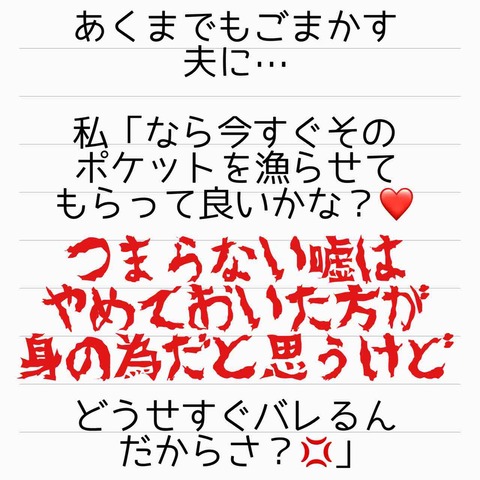 あくまでもごまかす
夫に…
私「なら今すぐその
ポケットを漁らせて
もらって良いかな？❤️
つまらない嘘は
やめておいた方が
身の為だと思うけど
どうせすぐバレるん
だからさ？💢」